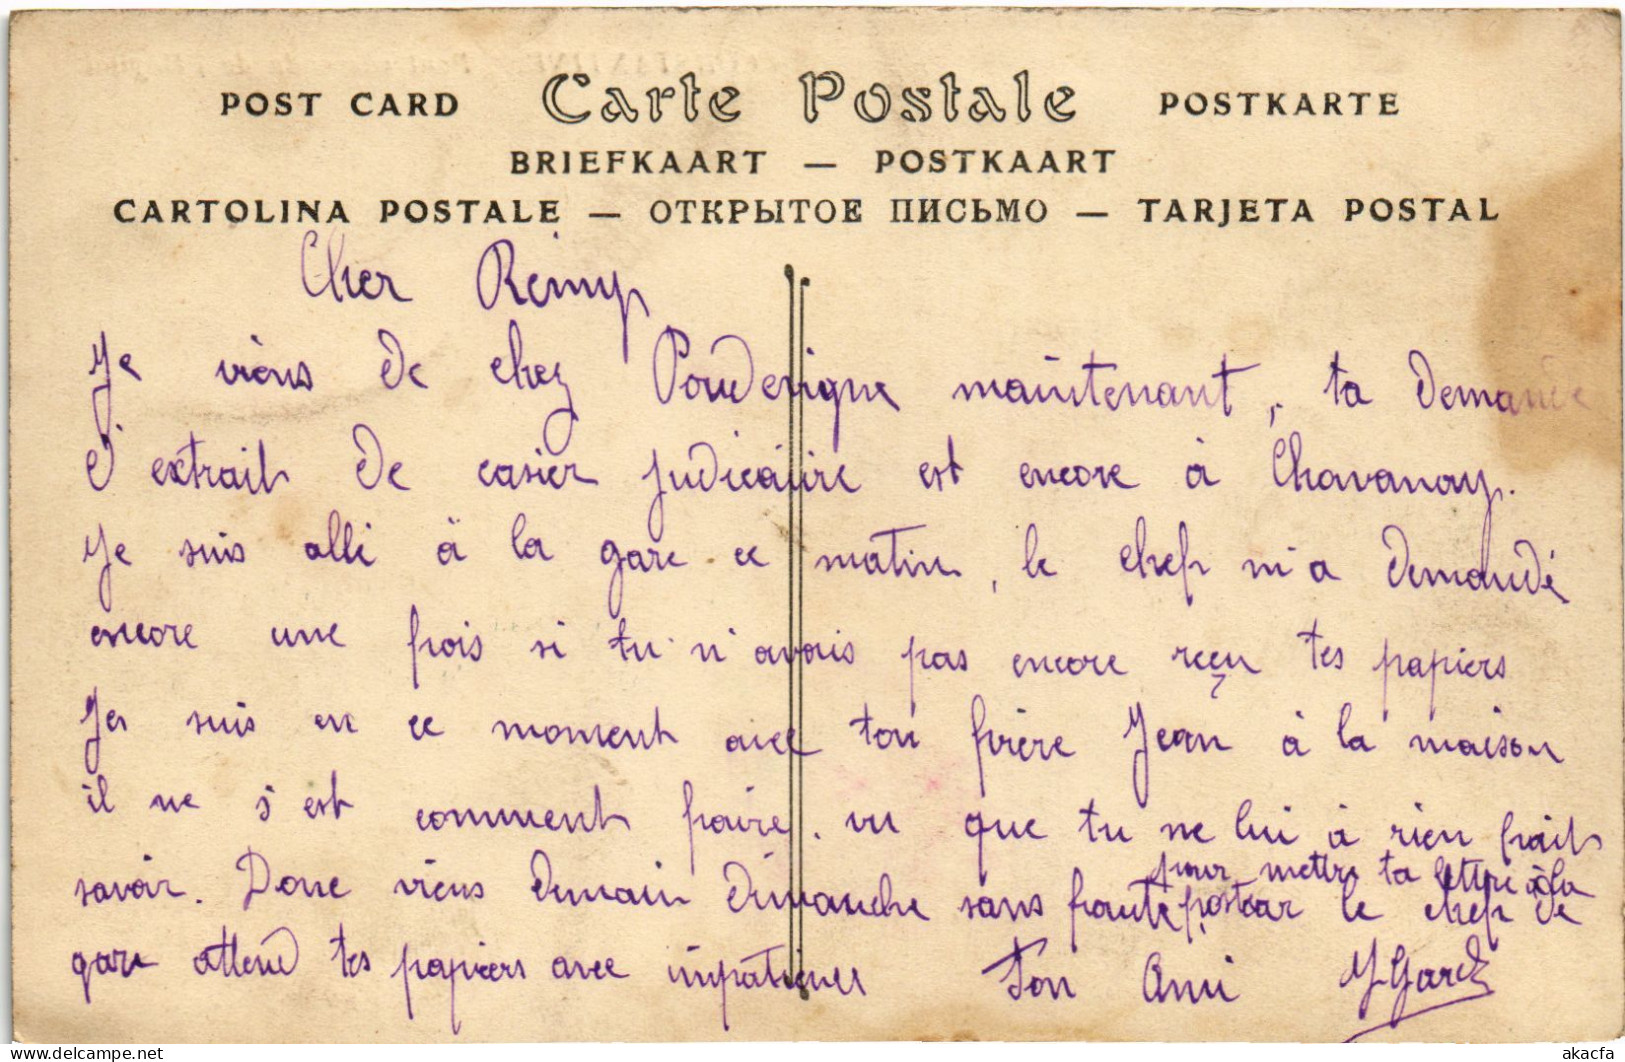 POST CARD Carte Postale POSTKARTE
BRIEFKAART — POSTKAART
CARTOLINA POSTALE — ОТКРЫТОЕ ПИСЬМО — TARJETA POSTAL
Cher Remy
Je viens de chez Pouderigne maintenant, ta demande
d'extrait de casier judicaiire est encore à Chavanay.
Je suis allé à la gare ce matin, le chef m'a demandé
encore une fois si tu n'avais pas encore reçu tes papiers
Je suis en ce moment avec ton frère Jean à la maison
il ne s'est comment faire, vu que tu ne lui à rien fait
savoir. Donc viens demain dimanche sans faute
pour mettre ta lettre à la
post car le chef de
gare attend tes papiers avec impatience Ton Ami
akacfa